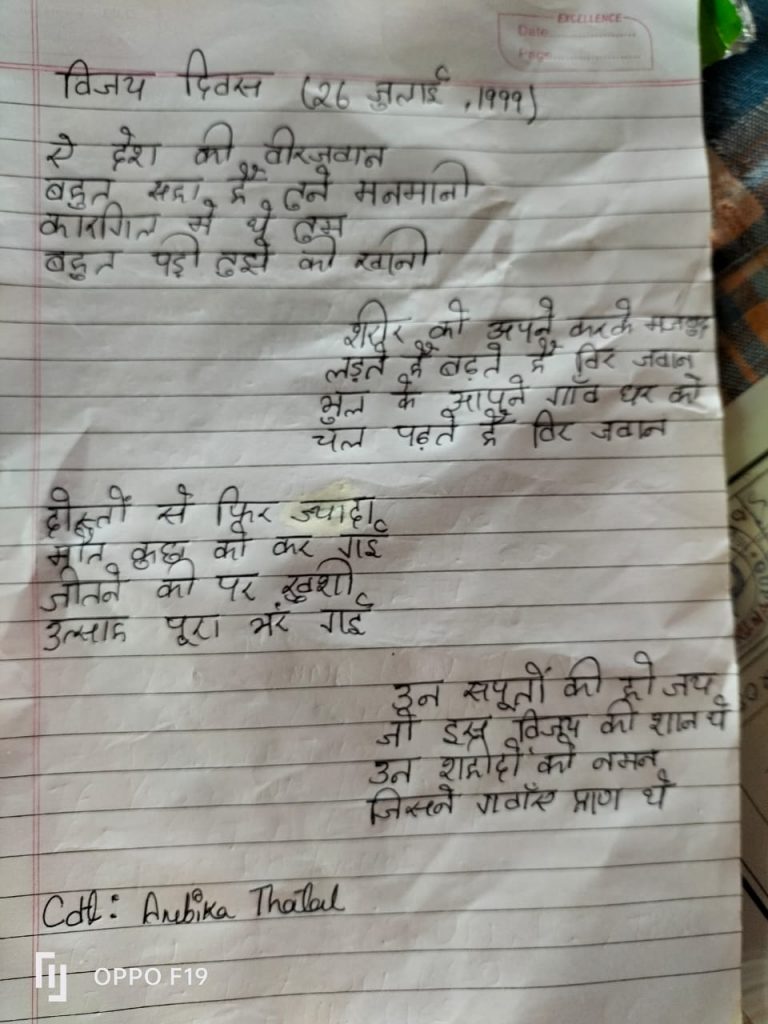 EXCELLENCE
Date
Page
विजय दिवस (26 जुलाई ,1999)
ऐ देश की वीरजवान
बहुत सहा है तुने मनमानी
कारगिल मे थे तुम
बहुत पड़ी तुझे की खानी
शरीर को अपने करके मजबूत
लड़ते है बढ़ते है विर जवान
भुल के आपने गाँव घर को
चल पढ़ते है विर जवान
दोस्तों से फिर ज्यादा
मौत कुछ को कर गई
जीतने की पर खुशी
उत्साह पूरा भर गई
उन सपूतों की हो जय
जो इस विजय की शान थे
उन शहीदों को नमन
जिसने गवाँए प्राण थे
Cdt: Ambika Thalal
OPPO F19